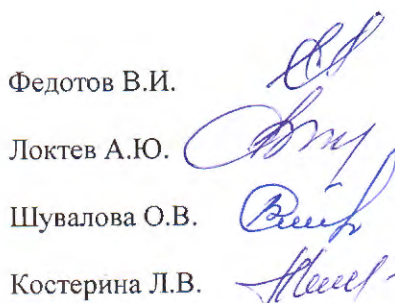 Федотов В.И.
Локтев А.Ю.
Шувалова О.В.
Костерина Л.В.